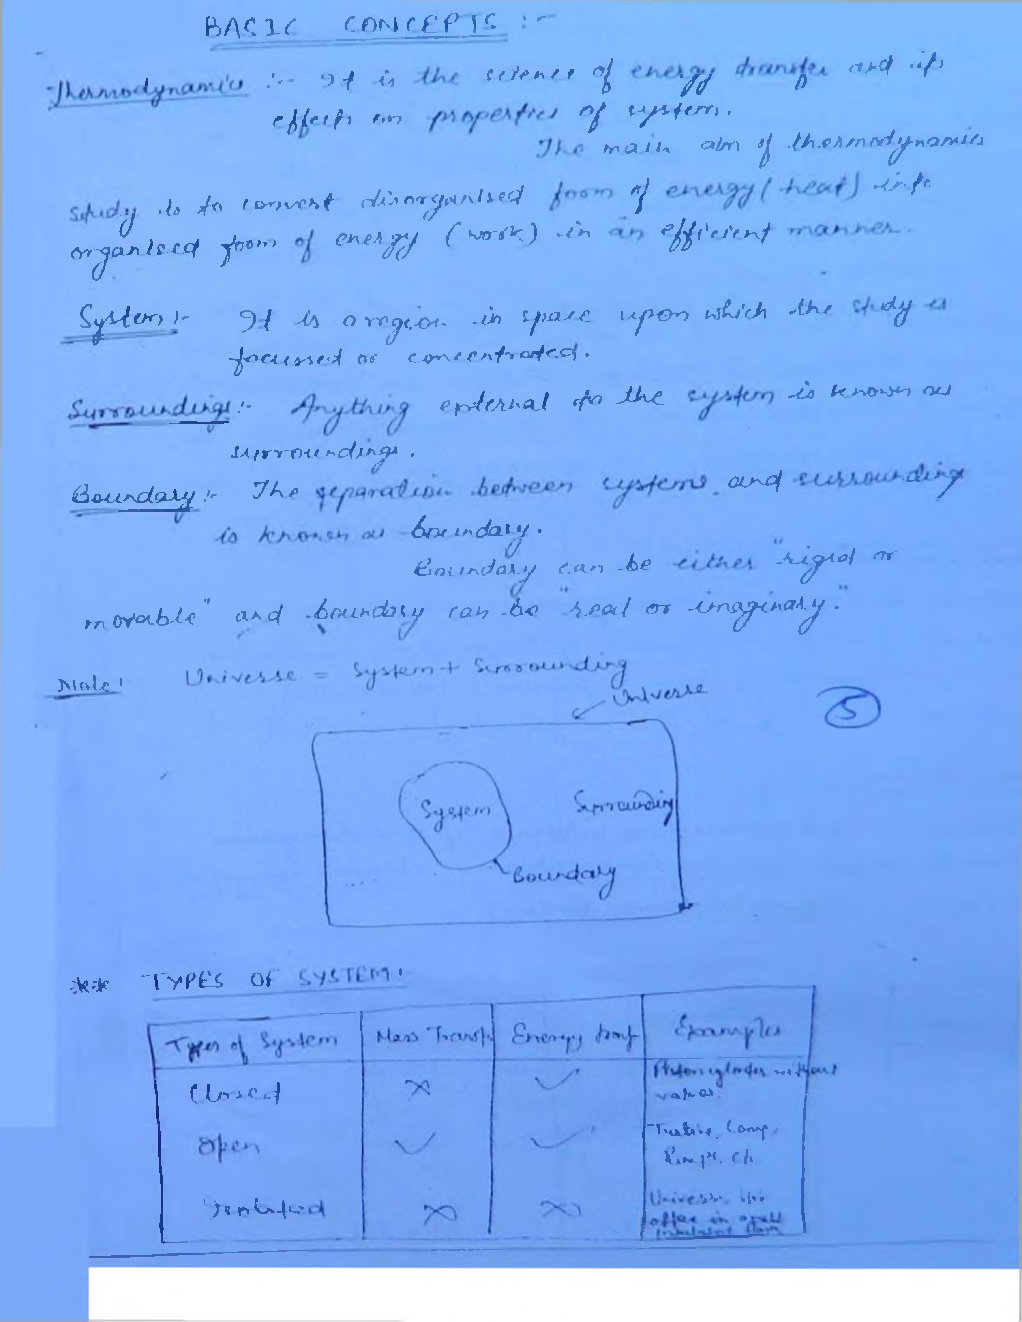 BASIC CONCEPTS :-
Thermodynamics :- It is the science of energy transfer and its
effects on properties of system.
The main aim of thermodynamics
study is to convert disorganised form of energy (heat) into
organised form of energy (work) in an efficient manner.
System :- It is a region in space upon which the study is
focussed or concentrated.
Surroundings :- Anything external to the system is known as
surroundings.
Boundary :- The separation between systems and surrounding
is known as boundary.
Boundary can be either "rigid or
movable" and boundary can be "real or imaginary."
Note: Universe = System + Surrounding
Universe
5
System
Surrounding
Boundary
** TYPES OF SYSTEM:
Types of System Mass Transf Energy transf Examples
Closed × ✓ Piston cylinder without
valves.
Open ✓ ✓ Turbine, Comp,
Pumps, etc
Isolated × × Universe, hot
coffee in a well
insulated flask